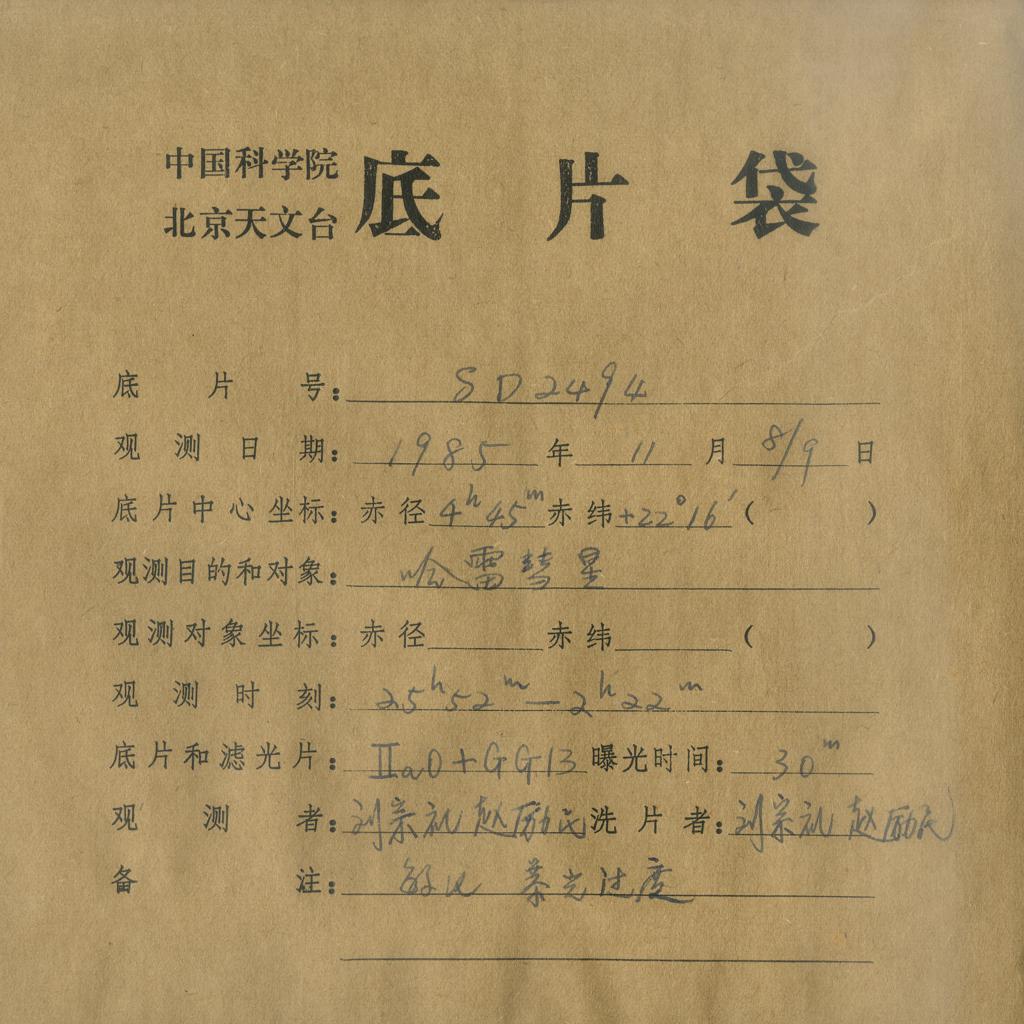 中国科学院
北京天文台
底片袋
底片号: SD2494
观测日期: 1985年11月8/9日
底片中心坐标: 赤径4ʰ45ᵐ赤纬+22°16′( )
观测目的和对象: 哈雷彗星
观测对象坐标: 赤径 赤纬 ( )
观测时刻: 25ʰ52ᵐ—2ʰ22ᵐ
底片和滤光片: ⅡaO+GG13 曝光时间: 30ᵐ
观测者: 刘宗礼 赵励民 洗片者: 刘宗礼 赵励民
备注: 敏化 光过度